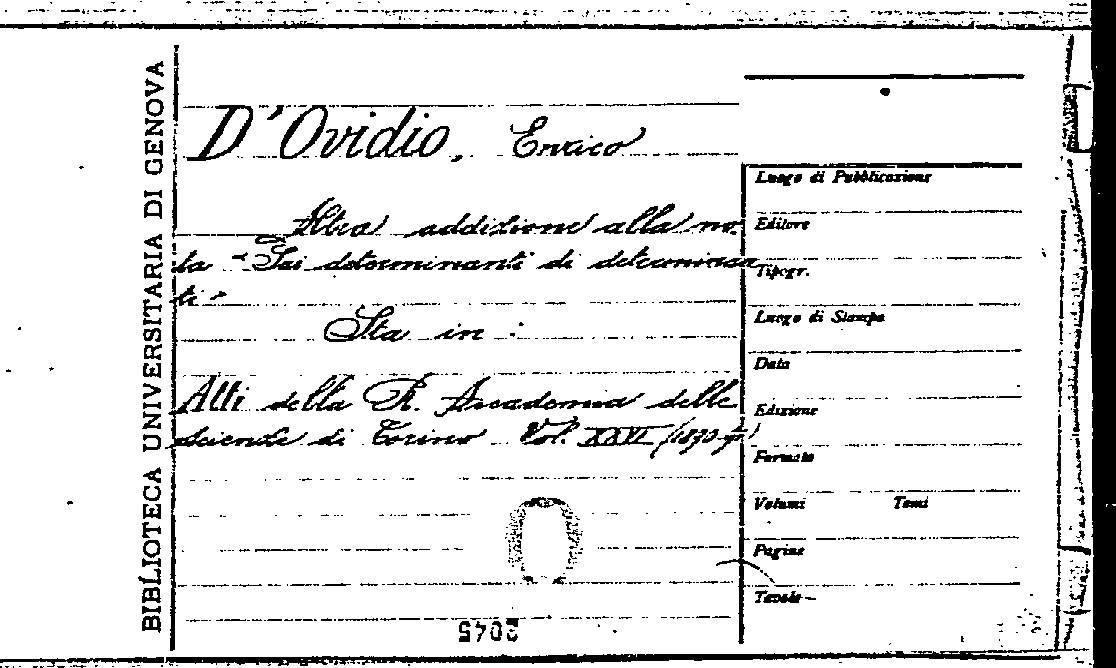 BIBLIOTECA UNIVERSITARIA DI GENOVA
D'Ovidio, Enrico
Altra addizione alla no
ta "Sui determinanti di determinan
ti"
Sta in :
Atti della R. Accademia delle
scienze di Torino Vol. XXVI
2045
Luogo di Pubblicazione
Editore
Tipogr.
Luogo di Stampa
Data
Edizione
Formato
Volumi Tomi
Pagine
Tavole